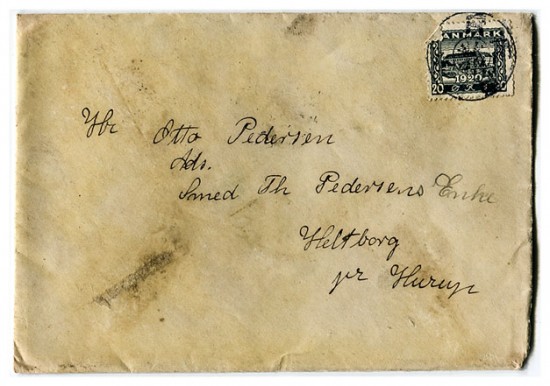 DANMARK
1920
20
Hr Otto Pedersen
Ads.
Smed Th Pedersens Enke
Heltborg
pr Hurup